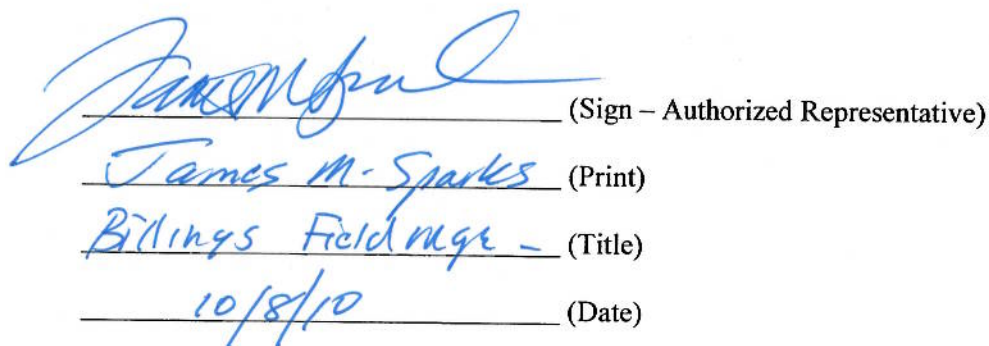 James M Spark (Sign – Authorized Representative)
James M. Sparks (Print)
Billings Field mgr - (Title)
10/8/10 (Date)